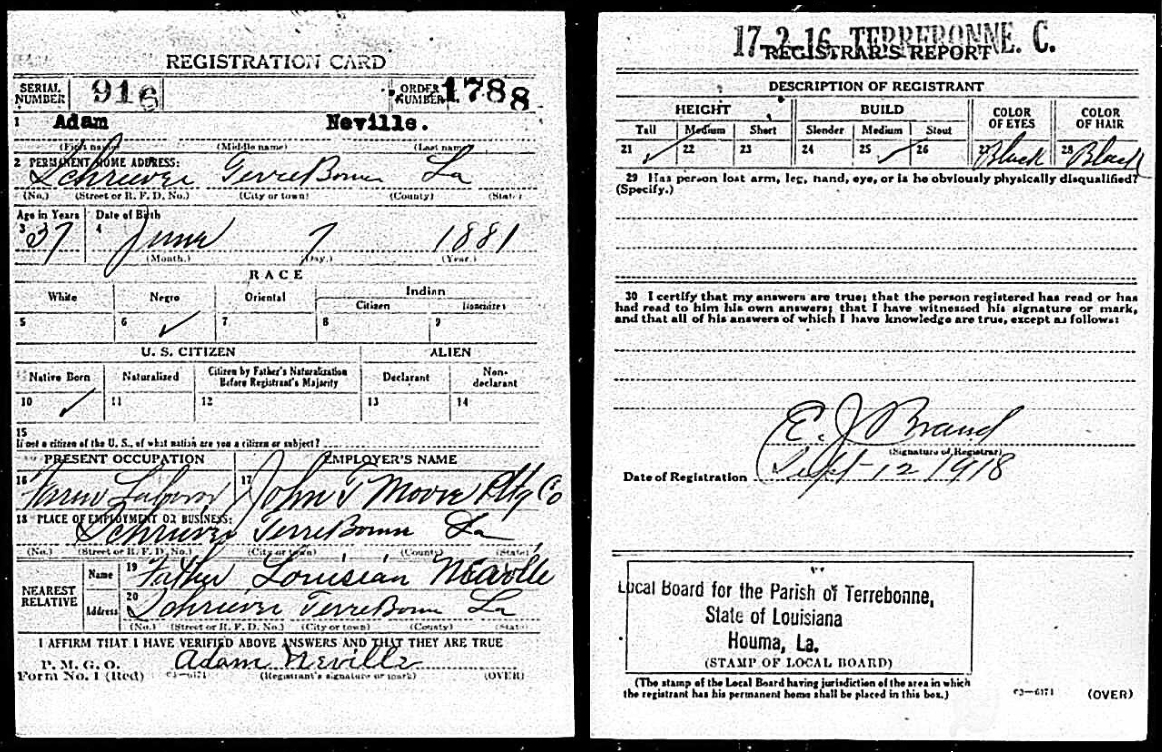 REGISTRATION CARD
SERIAL NUMBER 916 ORDER NUMBER 1788
1 Adam Neville.
(First name) (Middle name) (Last name)
2 PERMANENT HOME ADDRESS:
Schriever TerreBonne La
(No.) (Street or R. F. D. No.) (City or town) (County) (State)
Age in Years Date of Birth
3 37 4 June 7 1881
(Month.) (Day.) (Year.)
RACE
White Negro Oriental Indian
Citizen Noncitizen
5 6 ✓ 7 8 9
U. S. CITIZEN ALIEN
Native Born Naturalized Citizen by Father's Naturalization Before Registrant's Majority Declarant Non-declarant
10 ✓ 11 12 13 14
15
If not a citizen of the U. S., of what nation are you a citizen or subject?
PRESENT OCCUPATION EMPLOYER'S NAME
16 Farm Laborer 17 John T Moore Pltg Co
18 PLACE OF EMPLOYMENT OR BUSINESS:
Schriever TerreBonne La
(No.) (Street or R. F. D. No.) (City or town) (County) (State)
NEAREST RELATIVE Name 19 Father Louisian Neaville
Address 20 Schriever TerreBonne La
(No.) (Street or R. F. D. No.) (City or town) (County) (State)
I AFFIRM THAT I HAVE VERIFIED ABOVE ANSWERS AND THAT THEY ARE TRUE
P. M. G. O.
Form No. 1 (Red) Adam Neville
(Registrant's signature or mark) (OVER)
17 2 16 TERREBONNE. C.
REGISTRAR'S REPORT
DESCRIPTION OF REGISTRANT
HEIGHT BUILD COLOR OF EYES COLOR OF HAIR
Tall Medium Short Slender Medium Stout
21 ✓ 22 23 24 25 ✓ 26 27 Black 28 Black
29 Has person lost arm, leg, hand, eye, or is he obviously physically disqualified?
(Specify.)
30 I certify that my answers are true; that the person registered has read or has
had read to him his own answers; that I have witnessed his signature or mark,
and that all of his answers of which I have knowledge are true, except as follows:
E. J. Braud
(Signature of Registrar)
Date of Registration Sept 12 1918
Local Board for the Parish of Terrebonne,
State of Louisiana
Houma, La.
(STAMP OF LOCAL BOARD)
(The stamp of the Local Board having jurisdiction of the area in which
the registrant has his permanent home shall be placed in this box.)
03—6171 (OVER)